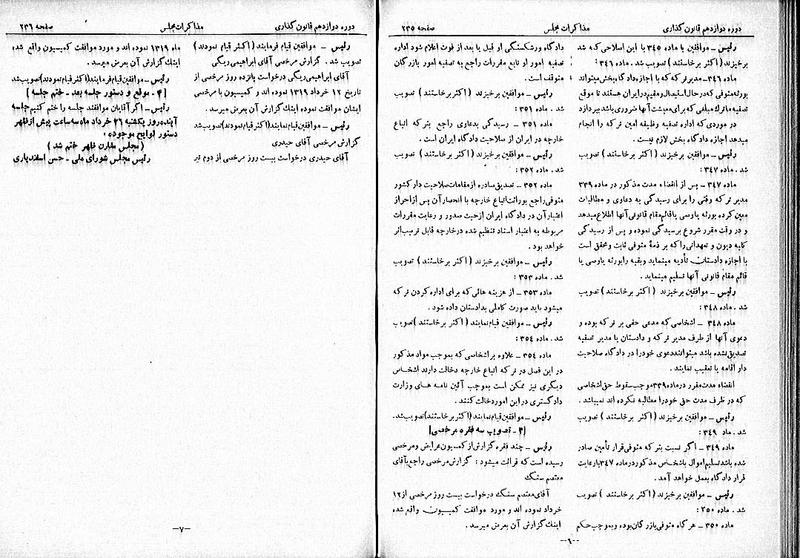 دوره دوازدهم قانون گذاری
مذاکرات مجلس
صفحه ۲۳۵
رئیس ــ موافقین با ماده ۳۴۵ با این اصلاحی که شد
برخیزند (اکثر برخاستند) تصویب شد. ماده ۳۴۶:
ماده ۳۴۶ـ مدیر ترکه که با اجازه دادگاه بخش میتواند
بورثه متوفی که در حال استیصال و مقیم در ایران هستند تا موقع
تصفیه ماترك مبلغی که برای معیشت آنها ضروری باشد بپردازد
در موردی که اداره تصفیه وظیفه امین ترکه را انجام
میدهد اجازه دادگاه بخش لازم نیست.
رئیس ــ موافقین برخیزند (اکثر برخاستند) تصویب
شد. ماده ۳۴۷:
ماده ۳۴۷ ـ پس از انقضاء مدت مذکور در ماده ۳۳۹
مدیر ترکه وقتی را برای رسیدگی به دعاوی و مطالبات
معین کرده بورثه یا وصی یا قائم مقام قانونی آنها اطلاع میدهد
و در وقت مقرر شروع برسیدگی نموده و پس از رسیدگی
کلیه دیون و تعهداتی را که بر ذمۀ متوفی ثابت و محقق است
با اجازه دادستان تأدیه مینماید و بقیه را بورثه یا وصی یا
قائم مقام قانونی آنها تسلیم مینماید.
رئیس ــ موافقین برخیزند (اکثر برخاستند) تصویب
شد. ماده ۳۴۸:
ماده ۳۴۸ ـ اشخاصی که مدعی حقی بر ترکه بوده و
دعوی آنها از طرف مدیر ترکه و دادستان یا مدیر تصفیه
تصدیق نشده باشد میتوانند دعوی خود را در دادگاه صلاحیت
دار اقامه یا تعقیب نمایند.
انقضاء مدت مقرر در ماده ۳۳۹ موجب سقوط حق اشخاصی
که در ظرف مدت حق خود را مطالبه نکرده اند نمیباشد.
رئیس ــ موافقین برخیزند (اکثر برخاستند) تصویب
شد. ماده ۳۴۹:
ماده ۳۴۹ ـ اگر نسبت بترکه متوفی قرار تأمین صادر
شده باشد تسلیم اموال باشخاص مذکور در ماده ۳۴۷ با رعایت
قرار دادگاه بعمل خواهد آمد.
رئیس ــ موافقین برخیزند (اکثر برخاستند) تصویب
شد. ماده ۳۵۰:
ماده ۳۵۰ ـ هرگاه متوفی بازرگان بوده و بموجب حکم
دادگاه ورشکستگی او قبل یا بعد از فوت اعلام شود اداره
تصفیه امور او تابع مقررات راجع به تصفیه امور بازرگان
متوقف است.
رئیس ــ موافقین برخیزند (اکثر برخاستند) تصویب
شد. ماده ۳۵۱:
ماده ۳۵۱ ـ رسیدگی بدعاوی راجع بترکه اتباع
خارجه در ایران از صلاحیت دادگاه ایران است.
رئیس ــ موافقین برخیزند (اکثر برخاستند) تصویب
شد. ماده ۳۵۲:
ماده ۳۵۲ ـ تصدیق صادره از مقامات صلاحیت دار کشور
متوفی راجع بوراثت اتباع خارجه یا انحصار آن پس از احراز
اعتبار آن در دادگاه ایران از حیث صدور و رعایت مقررات
مربوطه به اعتبار اسناد تنظیم شده در خارجه قابل ترتیب اثر
خواهد بود.
رئیس ــ موافقین برخیزند (اکثر برخاستند) تصویب
شد. ماده ۳۵۳:
ماده ۳۵۳ ـ از هزینه هائی که برای اداره کردن ترکه
میشود باید صورت کاملی بدادستان داده شود.
رئیس ــ موافقین قیام نمایند (اکثر برخاستند) تصویب
شد. ماده ۳۵۴:
ماده ۳۵۴ ـ علاوه بر اشخاصی که بموجب مواد مذکور
در این فصل در ترکه اتباع خارجه دخالت دارند اشخاص
دیگری نیز ممکن است بموجب آئین نامه های وزارت
دادگستری در این امور دخالت کنند.
رئیس ــ موافقین قیام نمایند (اکثر برخاستند) تصویب شد.
[۳ ـ تصویب سه فقره مرخصی]
رئیس ــ چند فقره گزارش از کمیسیون عرایض و مرخصی
رسیده است که قرائت میشود: گزارش مرخصی راجع بآقای
معتصم سنگ
آقای معتصم سنگ درخواست بیست روز مرخصی از ۱۲
خرداد نموده اند و مورد موافقت کمیسیون واقع شده
اینك گزارش آن بعرض میرسد.
ــ۶ــ
دوره دوازدهم قانون گذاری
مذاکرات مجلس
صفحه ۲۳۶
رئیس ــ موافقین قیام فرمایند (اکثر قیام نمودند)
تصویب شد. گزارش مرخصی آقای ابراهیمی ریگی
آقای ابراهیمی ریگی درخواست پانزده روز مرخصی از
تاریخ ۱۲ خرداد ۱۳۱۹ نموده اند و کمیسیون با مرخصی
ایشان موافقت نموده اینك گزارش آن بعرض میرسد.
رئیس ــ موافقین قیام نمایند (اکثر قیام نمودند) تصویب شد
گزارش مرخصی آقای حیدری
آقای حیدری درخواست بیست روز مرخصی از دوم تیر
ماه ۱۳۱۹ نموده اند و مورد موافقت کمیسیون واقع شده
اینك گزارش آن بعرض میرسد.
رئیس ــ موافقین قیام فرمایند (اکثر قیام نمودند) تصویب شد
[۴ ـ موقع و دستور جلسه بعد ـ ختم جلسه]
رئیس ــ اگر آقایان موافقند جلسه را ختم کنیم جلسه
آینده روز یکشنبه ۲۶ خرداد ماه سه ساعت پیش از ظهر
دستور لوایح موجوده.
(مجلس مقارن ظهر ختم شد)
رئیس مجلس شورای ملی ـ حسن اسفندیاری
ــ۷ــ